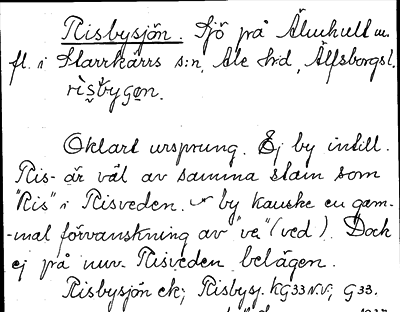 Risbysjön. Sjö på Älmhult m.
fl. i Starrkärrs s:n, Ale hd, Älfsborgs l.
rìsbygøn.
Oklart ursprung. Ej by intill.
Ris- är väl av samma stam som
"Ris" i Risveden. by kanske en gam-
-mal förvanskning av "ve" (ved). Dock
ej på nuv. Risveden belägen.
Risbysjön ek; Risbysj. KG33NV; G33.